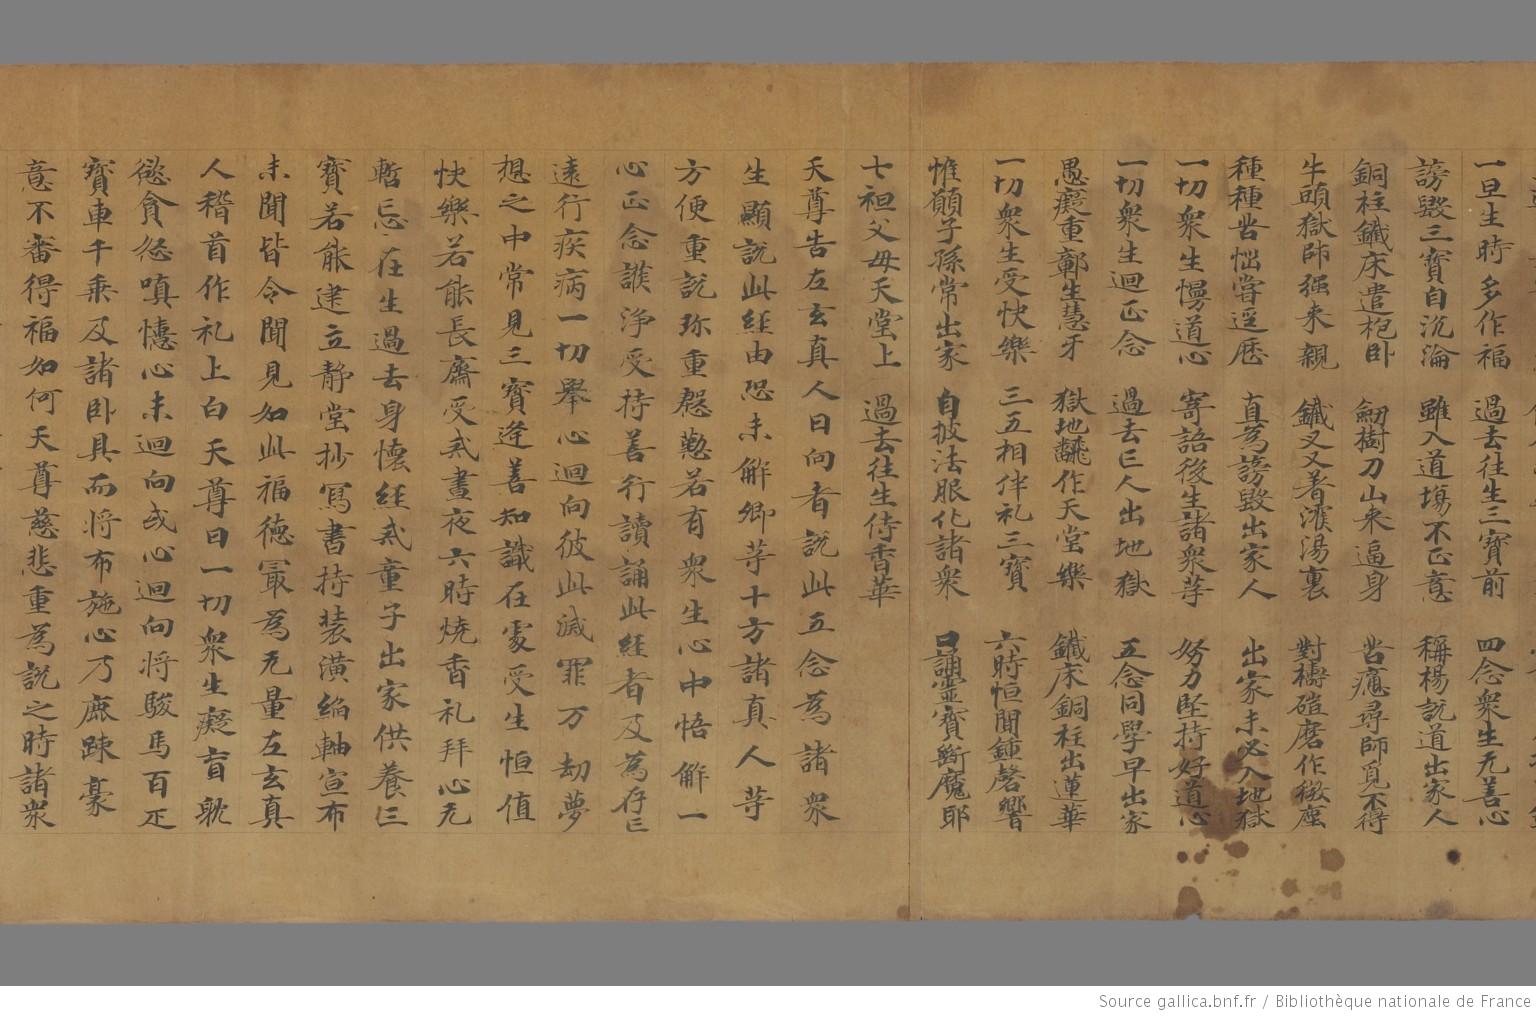 一旦生時多作福 過去往生三寶前 四念衆生无善心
謗毀三寶自沉淪 雖入道場不正意 稱楊說道出家人
銅柱鐵床遣抱卧 劒樹刀山來逼身 苦痛尋師覓不得
牛頭獄師强來親 鐵叉叉著濩湯裏 對擣磑磨作微塵
種種苦惱甞逕歷 直為謗毀出家人 出家未必入地獄
一切衆生慢道心 寄語後生諸衆等 努力堅持好道心
一切衆生迴正念 過去亡人出地獄 五念同學早出家
愚癡重鄣生慧牙 獄地飜作天堂樂 鐵床銅柱出蓮華
一切衆生受快樂 三五相伴礼三寶 六時恒聞鍾磬響
惟願子孫常出家 自披法服化諸衆 口誦靈寶斷魔耶
七祖父母天堂上 過去往生侍香華
天尊告左玄真人曰向者說此五念為諸衆
生顯說此經由恐未解卿等十方諸真人等
方便重說珎重慇懃若有衆生心中悟解一
心正念謹淨受持善行讀誦此經者及為存亡
遠行疾病一切舉心迴向彼此滅罪万劫夢
想之中常見三寶逢善知識在處受生恒值
快樂若能長齋受戒晝夜六時燒香礼拜心无
暫忘在生過去身懷經戒童子出家供養三
寶若能建立静堂抄寫書持裝潢綸軸宣布
未聞皆令聞見如此福德冣為无量左玄真
人稽首作礼上白天尊曰一切衆生癡盲躭
慾貪怒嗔懥心未迴向或心迴向将駿馬百疋
寶車千乘及諸卧具而将布施心乃麁踈豪
意不審得福如何天尊慈悲重為說之時諸衆
Source gallica.bnf.fr / Bibliothèque nationale de France